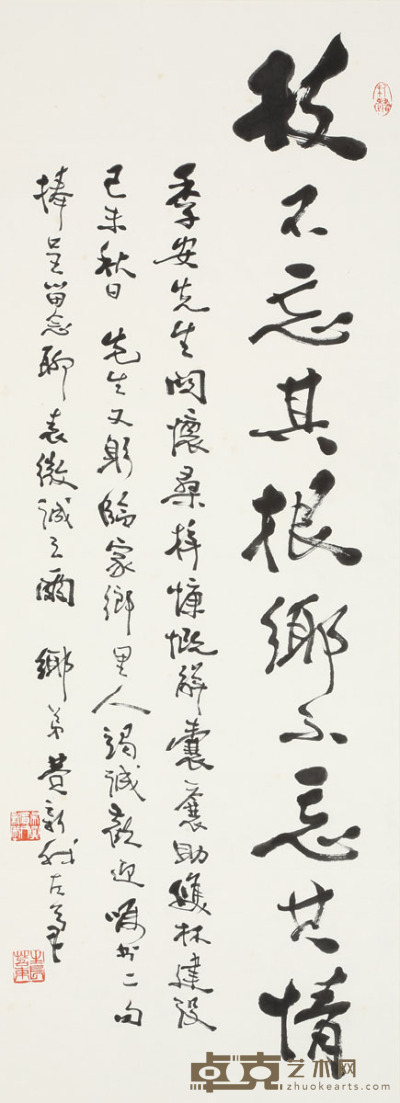 枝不忘其根鄉不忘其情
季安先生関懷桑梓慷慨解囊襄助雙林建設
己未秋日 先生又躬臨家鄉里人竭誠歡迎囑書二句
捧呈留念聊表微誠云爾 鄉弟費新我左筆
卓克艺术网
zhuokearts.com